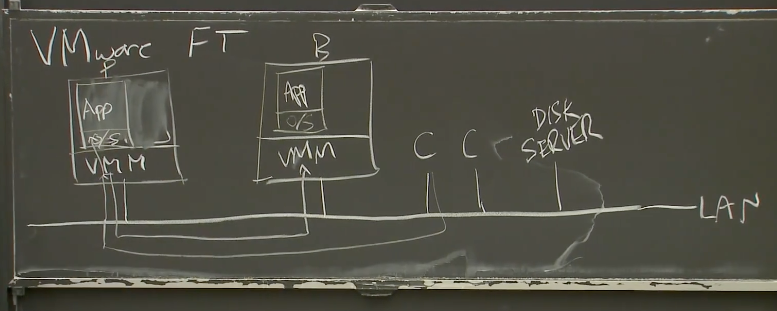 VMware FT
P
App
O/S
VMM
B
App
O/S
VMM
C C
DISK
SERVER
LAN